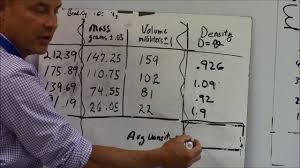 Mass Volume Density
grams ±.03 milliliters ±1 D=
212.39 147.25 159 .926
175.89 110.75 102 1.09
139.69 74.55 81 .92
91.19 26.05 22 1.9
Avg